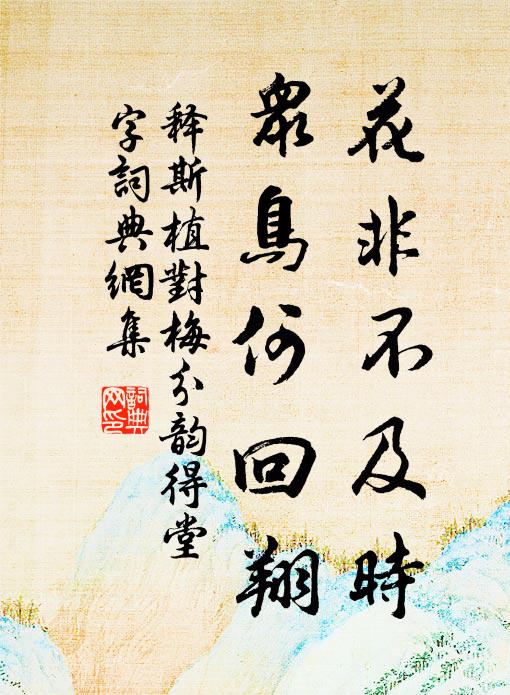 花非不及時
眾鳥何回翔
释斯植對梅分韵得堂
字詞典網集
詞典網印